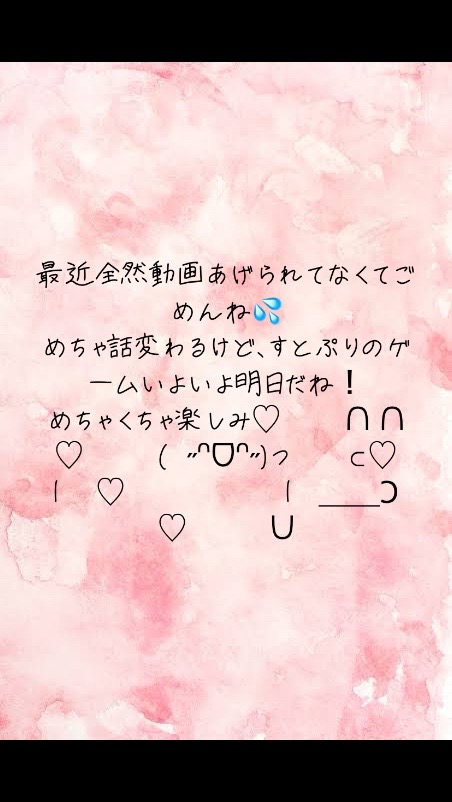 最近全然動画あげられてなくてご
めんね💦
めちゃ話変わるけど、すとぷりのゲ
ームいよいよ明日だね❗
めちゃくちゃ楽しみ♡　　∩ ∩
♡　　　( ˶ᐢᗜᐢ˶)っ　　⊂♡
|　♡　　　　　　|　____⊃
♡　　　∪